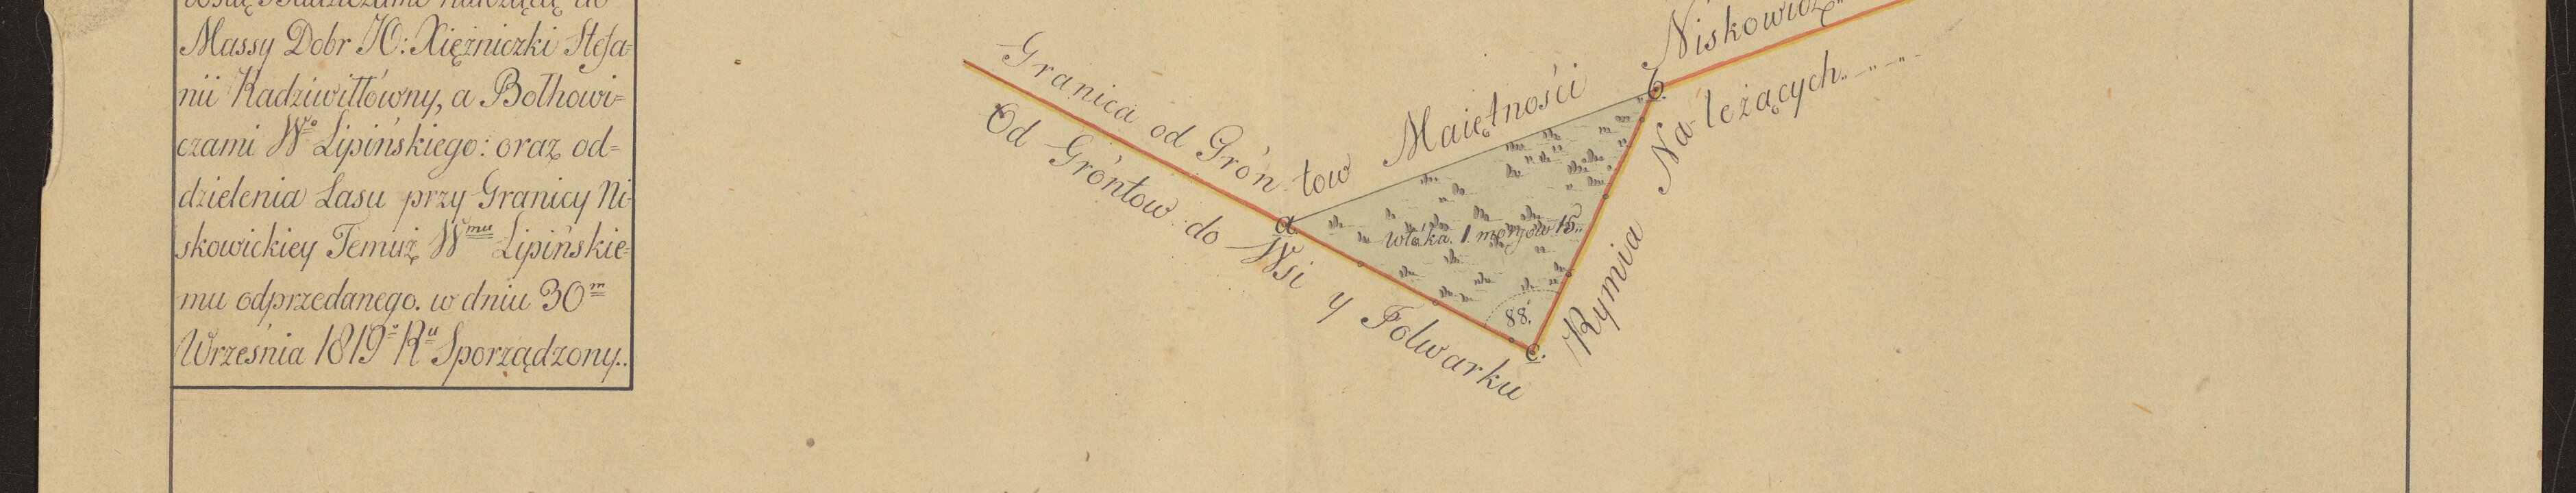 Massy Dobr JO: Xiężniczki Stefa-
nii Radziwiłłówny, a Bołhowi=
czami Wº Lipińskiego: oraz od=
dzielenia Lasu przy Granicy Ni-
skowickiey Temuż Wmu Lipińskie-
mu odprzedanego. w dniu 30m
Września 1819º Ru Sporządzony..
Granica od Grón tow Maiętności Niskowicz
Od Gróntow do Wsi y Folwarku Rymia Na leżących
a.
b.
włóka. 1. morgów 15.
88.
c.